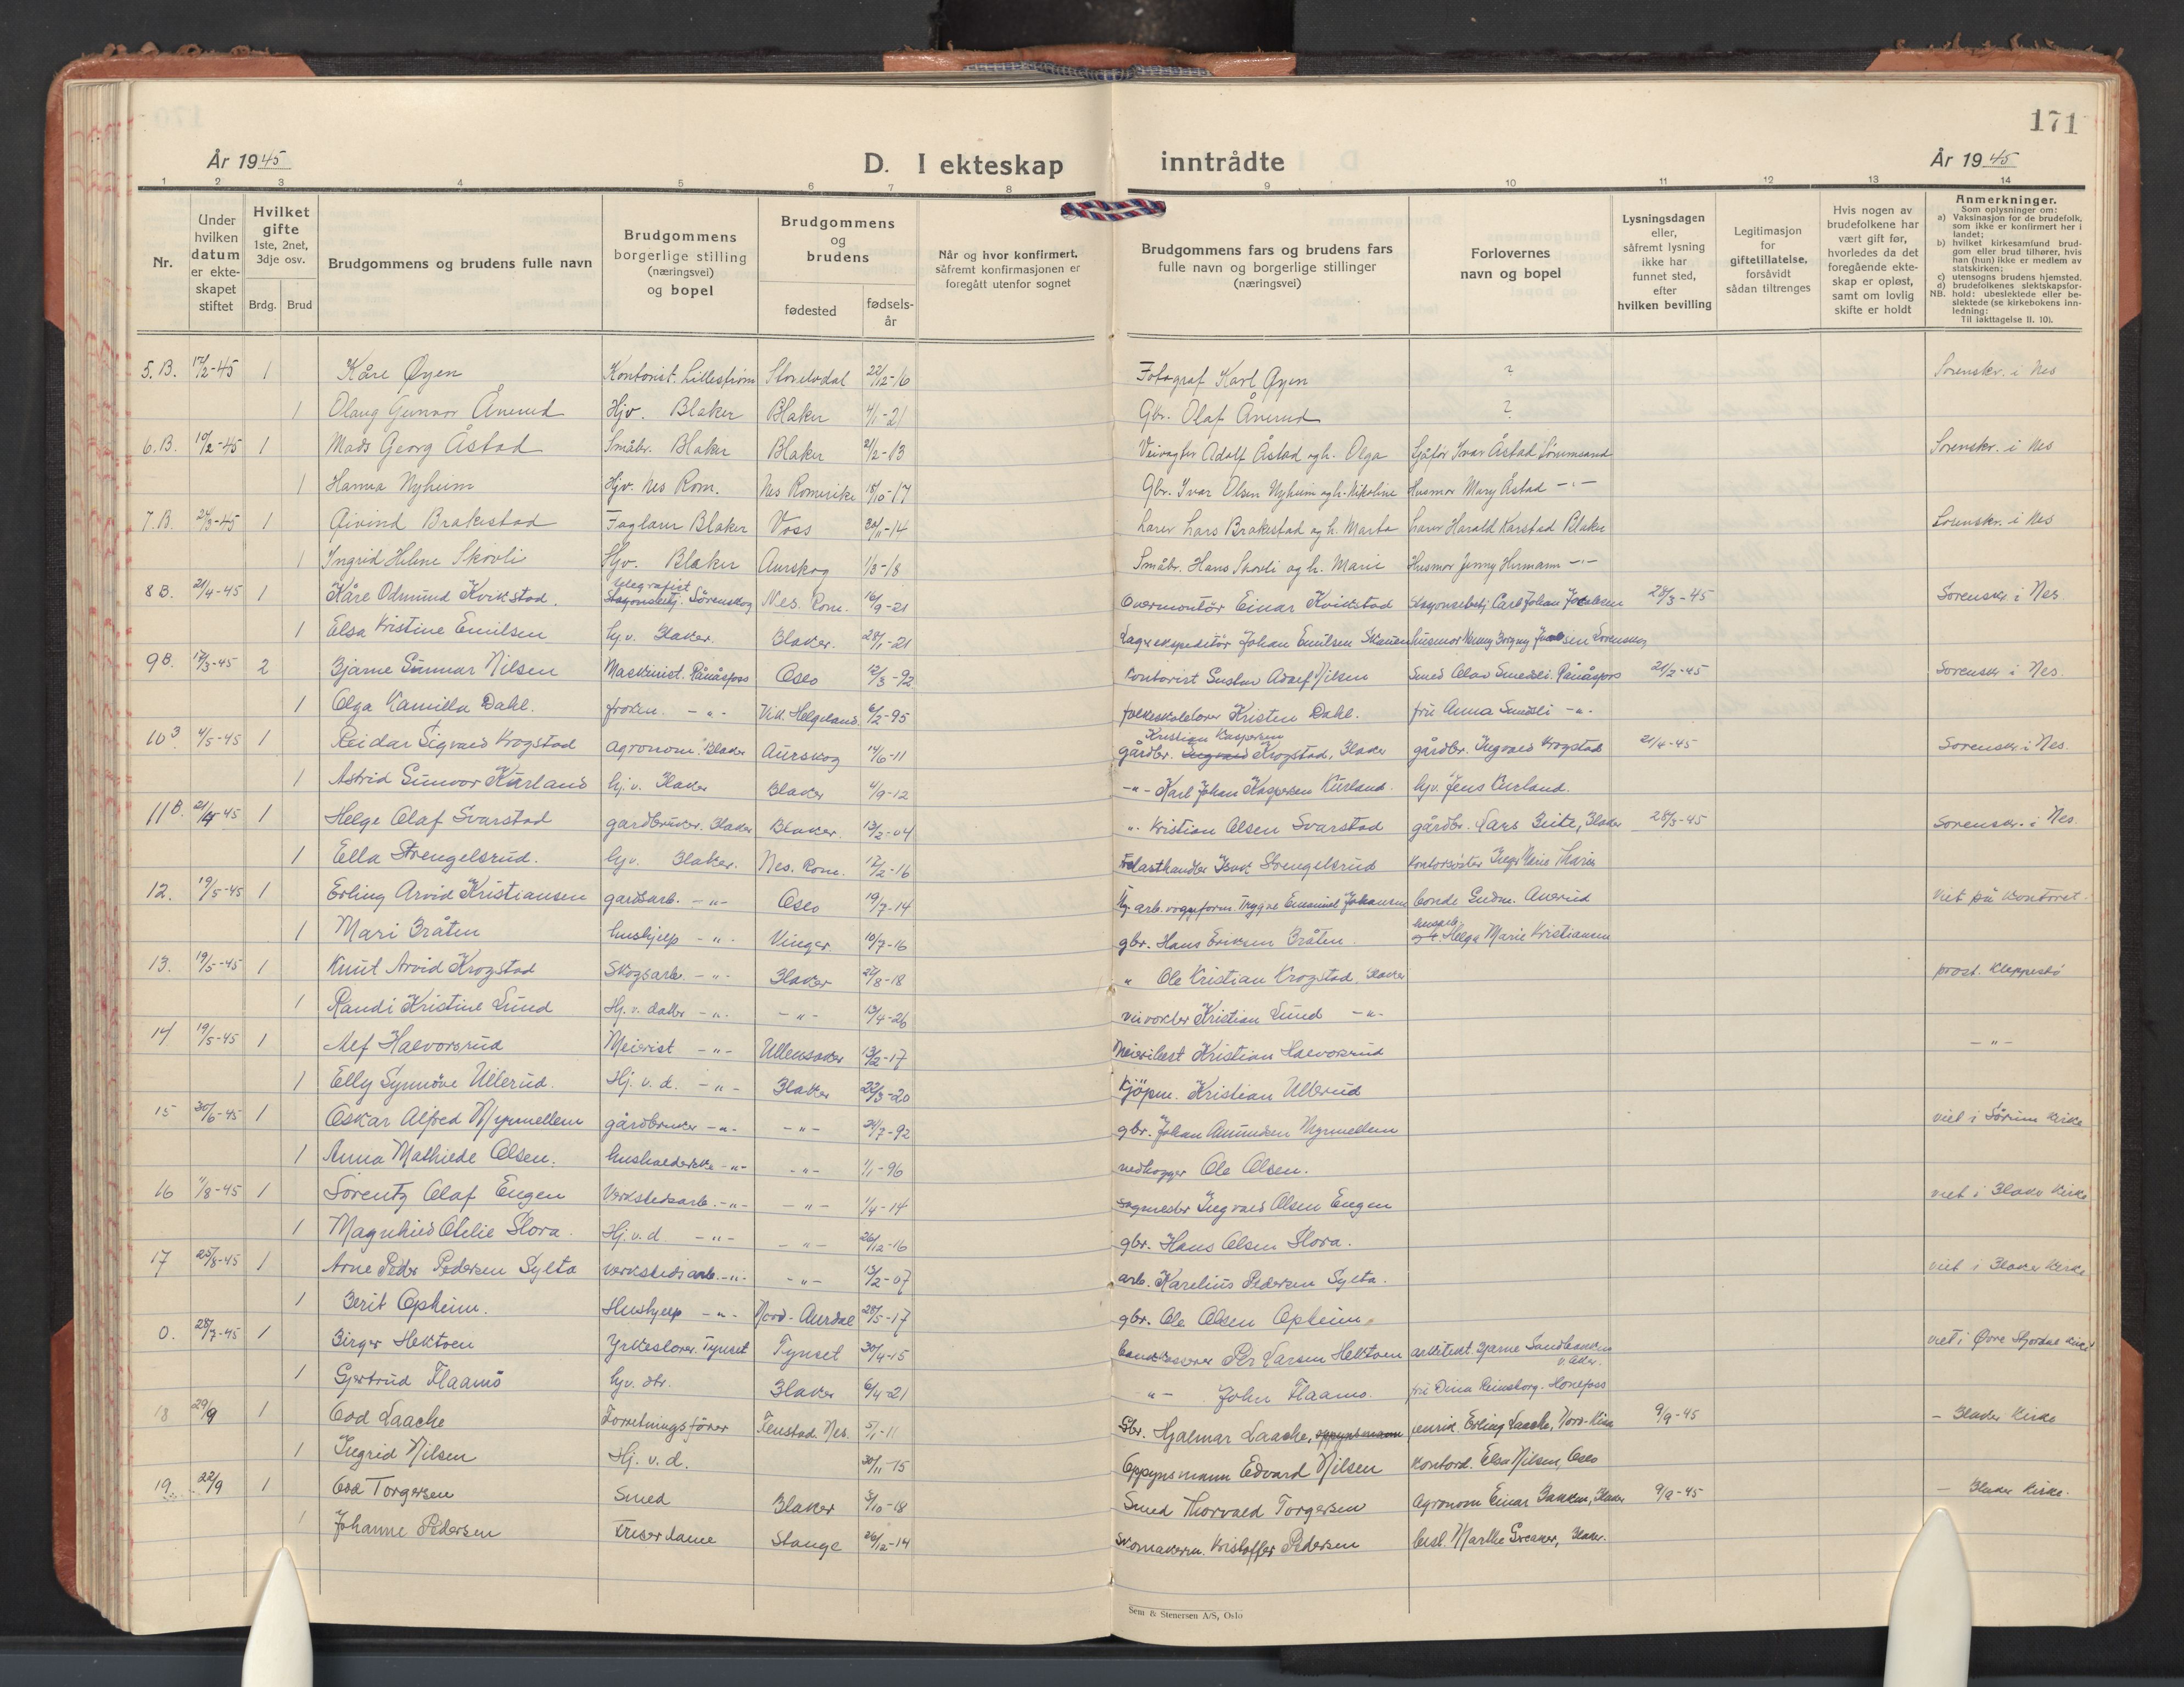 171
År 1945
D. I ekteskap inntrådte
År 1945
1 2 3 4 5 6 7 8 9 10 11 12 13 14
Nr.
Under hvilken datum er ekteskapet stiftet
Hvilket gifte 1ste, 2net, 3dje osv.
Brdg. Brud
Brudgommens og brudens fulle navn
Brudgommens borgerlige stilling (næringsvei) og bopel
Brudgommens og brudens
fødested
fødsels-år
Når og hvor konfirmert, såfremt konfirmasjonen er foregått utenfor sognet
Brudgommens fars og brudens fars fulle navn og borgerlige stillinger (næringsvei)
Forlovernes navn og bopel
Lysningsdagen eller, såfremt lysning ikke har funnet sted, efter hvilken bevilling
Legitimasjon for giftetillatelse, forsåvidt sådan tiltrenges
Hvis nogen av brudefolkene har vært gift før, hvorledes da det foregående ekteskap er opløst, samt om lovlig skifte er holdt
Anmerkninger.
Som oplysninger om:
a) Vaksinasjon for de brudefolk, som ikke er konfirmert her i landet;
b) hvilket kirkesamfund brudgom eller brud tilhører, hvis han (hun) ikke er medlem av statskirken;
c) utensogns brudens hjemsted.
d) brudefolkenes slektskapsforhold: ubeslektede eller beslektede (se kirkebokens innledning:
NB. Til iakttagelse II. 10).
5.B. 17/2-45 1 Kåre Øyen Kontorist. Lillestrøm Storelvdal 22/12-16 Fotograf Karl Øyen ? Sorenskr. i Nes
1 Olaug Gunvor Ånerud Hjv. Blaker Blaker 4/1-21 Gbr. Olaf Ånerud ?
6.B. 10/2-45 1 Mads Georg Åstad Småbr. Blaker Blaker 21/2-13 Veivogter Adolf Åstad og h. Olga Sjåfør Ivar Åstad Sørumsand Sorenskr. i Nes
1 Hanna Nyhum Hjv. Nes Rom. Nes Romerike 18/10-17 Gbr. Ivar Olsen Nyhum og h. Nikoline Husmor Mary Åstad -"-
7.B. 21/3-45 1 Øivind Brakestad Faglær Blaker Voss 30/11-14 Lærer Lars Brakestad og h. Marta Lærer Harald Karstad Blaker Sorenskr. i Nes
1 Ingrid Helene Skovli Hjv. Blaker Aurskog 1/3-18 Småbr. Hans Skovli og h. Marie Husmor Jenny Hermann -"-
8 B. 21/4-45 1 Kåre Odmund Kvikstad. telegrafist Sørenskog Nes. Rom. 16/9-21 Overmontør Einar Kvikstad Stasjonsbetj. Carl Johan 28/3-45 Sorenskr i Nes
1 Elsa Kristine Emilsen hj.v. Blaker. Blaker. 28/1-21 Lagerekspeditör Johan Emilsen Skauen husmor
9 B. 17/3-45 2 Bjarne Gunnar Nilsen Maskinist. Rånåsfoss Oslo 12/3-92 Kontorist Gustav Adolf Nilsen Smed Olav Smedsli. Rånåsfoss 21/2-45 Sorenskr i Nes.
1 Olga Kamilla Dahl. frøken. -"- Vik. Helgeland 6/2-95 folkeskolelærer Kristen Dahl. fru Anna Smedsli -"-
10 B 4/5-45 1 Reidar Sigvald Krogstad Agronom. Blaker Aurskog 14/6-11 gårdbr. Kristian Kaspersen Krogstad, Blaker gårdbr. Ingvald Krogstad 21/4-45 Sorenskr i Nes.
1 Astrid Gunvor Kurland hj.v. Blaker Blaker 4/9-12 -"- Karl Johan Kaspersen Kurland. hjv. Jens Kurland.
11 B. 21/4 45 1 Helge Olaf Svarstad gardbruker. Blaker Blaker. 13/2-04 " Kristian Olsen Svarstad gårdbr. Lars Beite, Blaker 28/3-45 Sorenskr. i Nes
1 Ella Strengelsrud. hjv. Blaker. Nes. Rom. 12/2-16 Trelasthandler Isak Strengelsrud kontorsøster Inger Marie Thario
12. 19/5-45 1 Erling Arvid Kristiansen gardsarb. -"- Oslo 19/7-14 arb. vognform. Trygve Emanuel Johansen bonde Gudm. Anerud viet på kontoret.
1 Mari Bråten hushjelp -"- Vinger 10/7-16 gbr. Hans Eriksen Bråten. husarb. Helga Marie Kristiansen
13. 19/5-45 1 Knut Arvid Krogstad Skogsarb -"- Blaker 27/8-18 " Ole Kristian Krogstad. Blaker prost. Kleppestö
1 Randi Kristine Lund Hj.v. datter -"- -"- 13/4-26 veivokter Kristian Lund -"-
14 19/5-45 1 Alf Halvorsrud Meierist -"- Ullensaker 13/2-17 Meieribest Kristian Halvorsrud -"-
1 Elly Synnöve Ullerud. Hj.v.d. -"- Blaker 22/3-20 Kjöpm. Kristian Ullerud
15 30/6-45 1 Oskar Alfred Myrmellem gårdbruker -"- -"- 24/7-92 gbr. Johan Amundsen Myrmellem viet i Sörum Kirke
1 Anna Mathilde Olsen. husholderske -"- -"- 1/1-96 vedhogger Ole Olsen.
16 11/8-45 1 Lorentz Olaf Engen Verkstedsarb. -"- -"- 1/4-14 sagmester Ingvald Olsen Engen viet i Blaker Kirke
1 Magnhild Otelie Slora. Hj.v.d -"- -"- 26/12-16 gbr. Hans Olsen Slora.
17 25/8-45 1 Arne Peder Pedersen Sylta verkstedsarb. -"- -"- 13/2-07 arb. Karelius Pedersen Sylta. viet i Blaker Kirke
1 Berit Opheim. Hushjelp -"- Nord-Aurdal 28/5-17 gbr. Ole Olsen Opheim.
0. 28/7-45 1 Birger Hektoen Yrkeslærer. Tynset Tynset 30/4-15 bankkasserer Per Larsen Hektoen arkitekt. Bjarne Sandbakken viet i Øvre Stjordal kirke
1 Gjertrud Flaamo hjv. dtr. Blaker 6/4-21 -"- John Flaamo. fru Dina Reinsborg. Hønefoss
18 29/9 1 Odd Laache Forretningsfører Fenstad Nes. 5/1-11 Gbr. Hjalmar Laache, oppsynsmann Erling Laache, Nord-Kisa 9/9-45 - Blaker Kirke
1 Ingrid Nilsen Hj.v.d. 30/11-15 Oppsynsmann Edvard Nilsen kontord. Elsa Nilsen, Oslo
19. 22/9 1 Odd Torgersen Smed Blaker 3/10-18 Smed Thorvald Torgersen Agronom Einar Bakken, Blaker 9/9-45 - Blaker Kirke.
1 Johanne Pedersen Friserdame Stange 26/12-14 Skomakerm. Kristoffer Pedersen best. Marthe Greaker, Blaker.
Sem & Stenersen A/S, Oslo